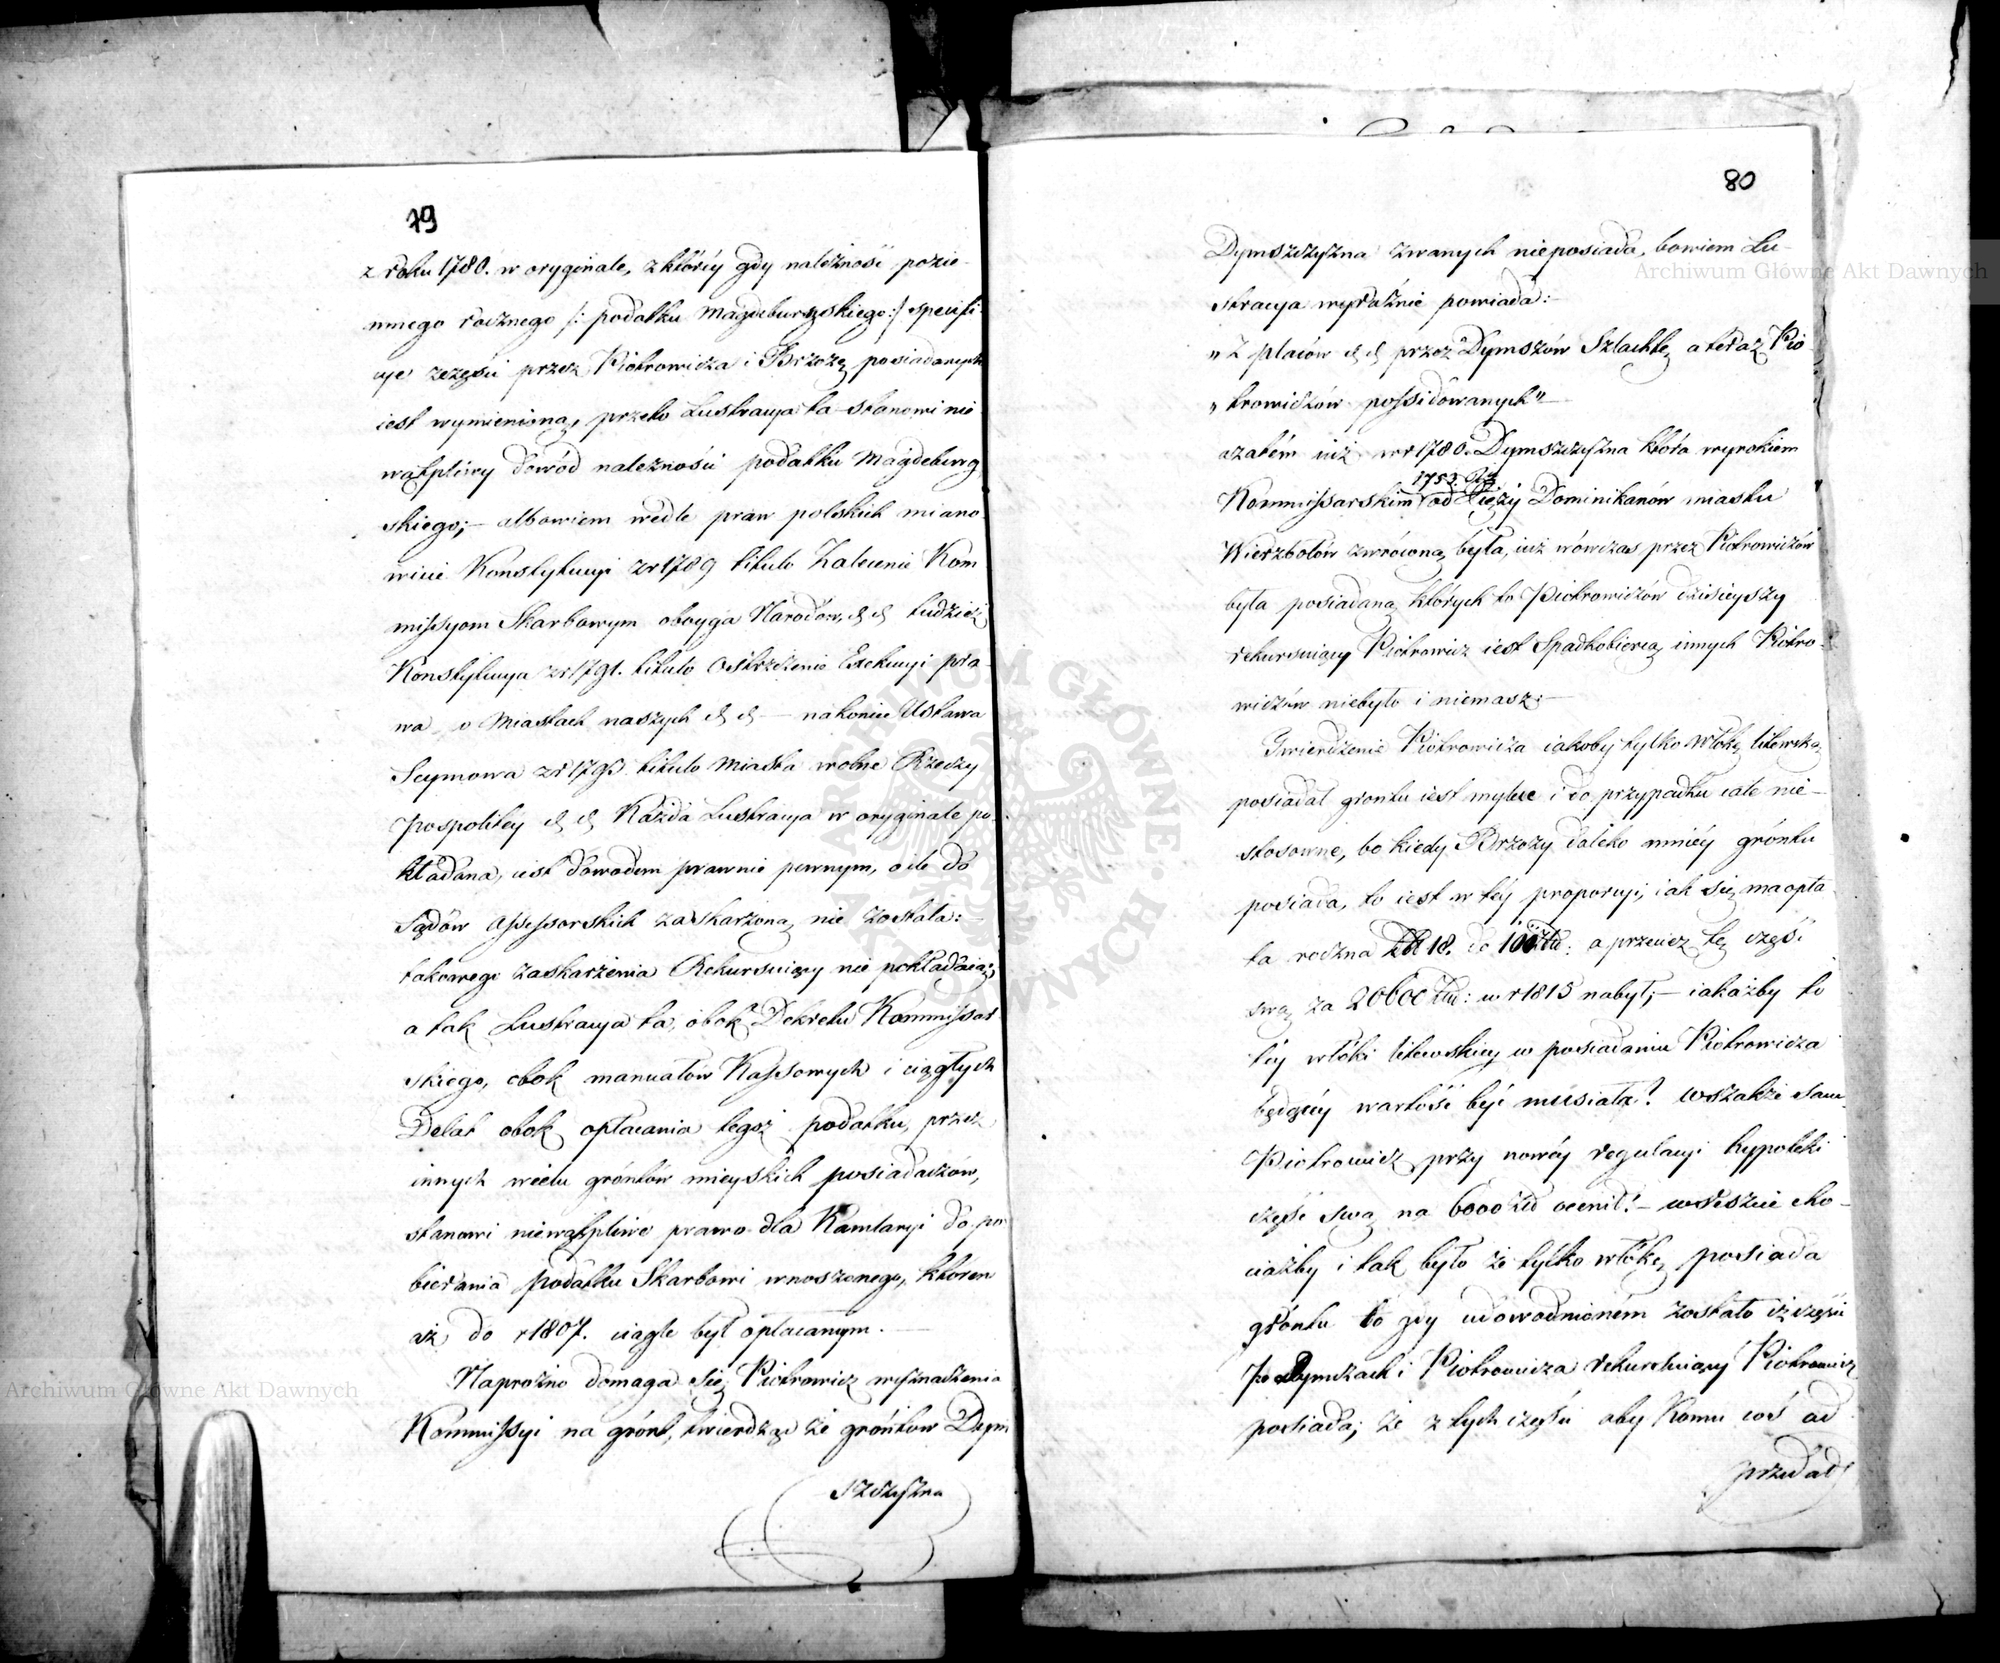 79
z roku 1780. w oryginale, z któréy gdy należność pozie-
mnego rocznego /: podatku Magdeburgskiego :/ specifi-
cye części przez Piotrowicza i Brzozę posiadanych
iest wymienioną, przeto Lustracya ta stanowi nie
wątpliwy dowód należności podatku Magdeburg
skiego; – albowiem wedle praw polskich miano-
wicie Konstytucyi z r 1789 titulo Zalecenie Kom
missyom Skarbowym oboyga Narodów, &c &c tudzież
Konstytucya z r 1791. titulo Ostrzeżenie Exekucyi pra-
wa o Miastach naszych &c &c – nakoniec Ustawa
Seymowa z r 179 titulo Miasta wolne Rzeczy
pospolitey &c &c Każda Lustracya w oryginale po-
kładana, iest dowodem prawnie pewnym, o ile do
Sądów Assessorskich zaskarżoną nie została: –
takowego zaskarżenia Rekursuiący nie pokładaiąc;
a tak Lustracya ta, obok Dekretu Kommissar
skiego, obok manuałów Kassowych i ciągłych
Delat obok opłacania tegoż podatku, przez
innych wielu gróntów mieyskich posiadaczów,
stanowi niewątpliwe prawo dla Kamlaryi do po
bierania podatku Skarbowi wnoszonego, któren
aż do r 1807. ciągle był opłacanym. –
Naprożno domaga się Piotrowicz wyznaczenia
Kommissyi na grónt, twierdząc że gróntów Dym
szczyzna
80
Dymszczyzna zwanych nieposiada, bowiem Lu-
stracya wyraźnie powiada: –
„ Z placów &c &c przez Dymszów Szlachtę a teraz Pio
„ trowiczów possidowanych" –
azatém iuż w r 1780. Dymszczyzna która wyrokiem
1753.
Kommissarskim od Xięży Dominikanów miastu
Wierzbołów zwróconą była, iuż wówczas przez Piotrowiczów
była posiadaną których to Piotrowiczów dzisieyszy
rekursuiący Piotrowicz iest Spadkobiercą innych Piotro-
wiczów niebyło i niemasz. –
Twierdzenie Piotrowicza iakoby tylko włokę litewską
posiadał grontu iest mylne i do przypadku cale nie-
stosowne, bo kiedy Brzozy daleko mniéy gróntu
posiada, to iest w téy proporcyi, iak się ma opła
ta roczna 18. do 100 : a przecież tę część
swą za 20600 złtt: w r 1815 nabył; – iakażby to
téy włóki litewskiey w posiadaniu Piotrowicza
będącéy wartość być musiała? wszakże sam
Piotrowicz przy nowéy regulacyi hypoteki
część swą na 6000 zł ocenił! – wreszcie cho-
ciażby i tak było że tylko włókę posiada
gróntu to gdy udowodnioném zostało iż części
po Dymszach i Piotrowicza rekursuiący Piotrowicz
posiada; że z tych części aby Komu coś od
przedał
Archiwum Główne Akt Dawnych
Archiwum Główne Akt Dawnych
ARCHIWUM GŁÓWNE AKT DAWNYCH